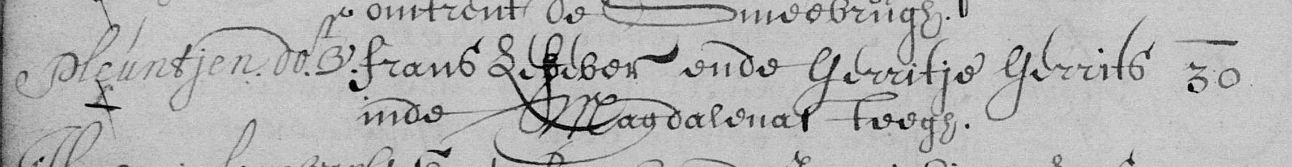 omtrent de Smeebrugh.
Pleuntjen. do. 3. frans Lefever ende Gerritje Gerrits 30
inde Magdalenae steegh.